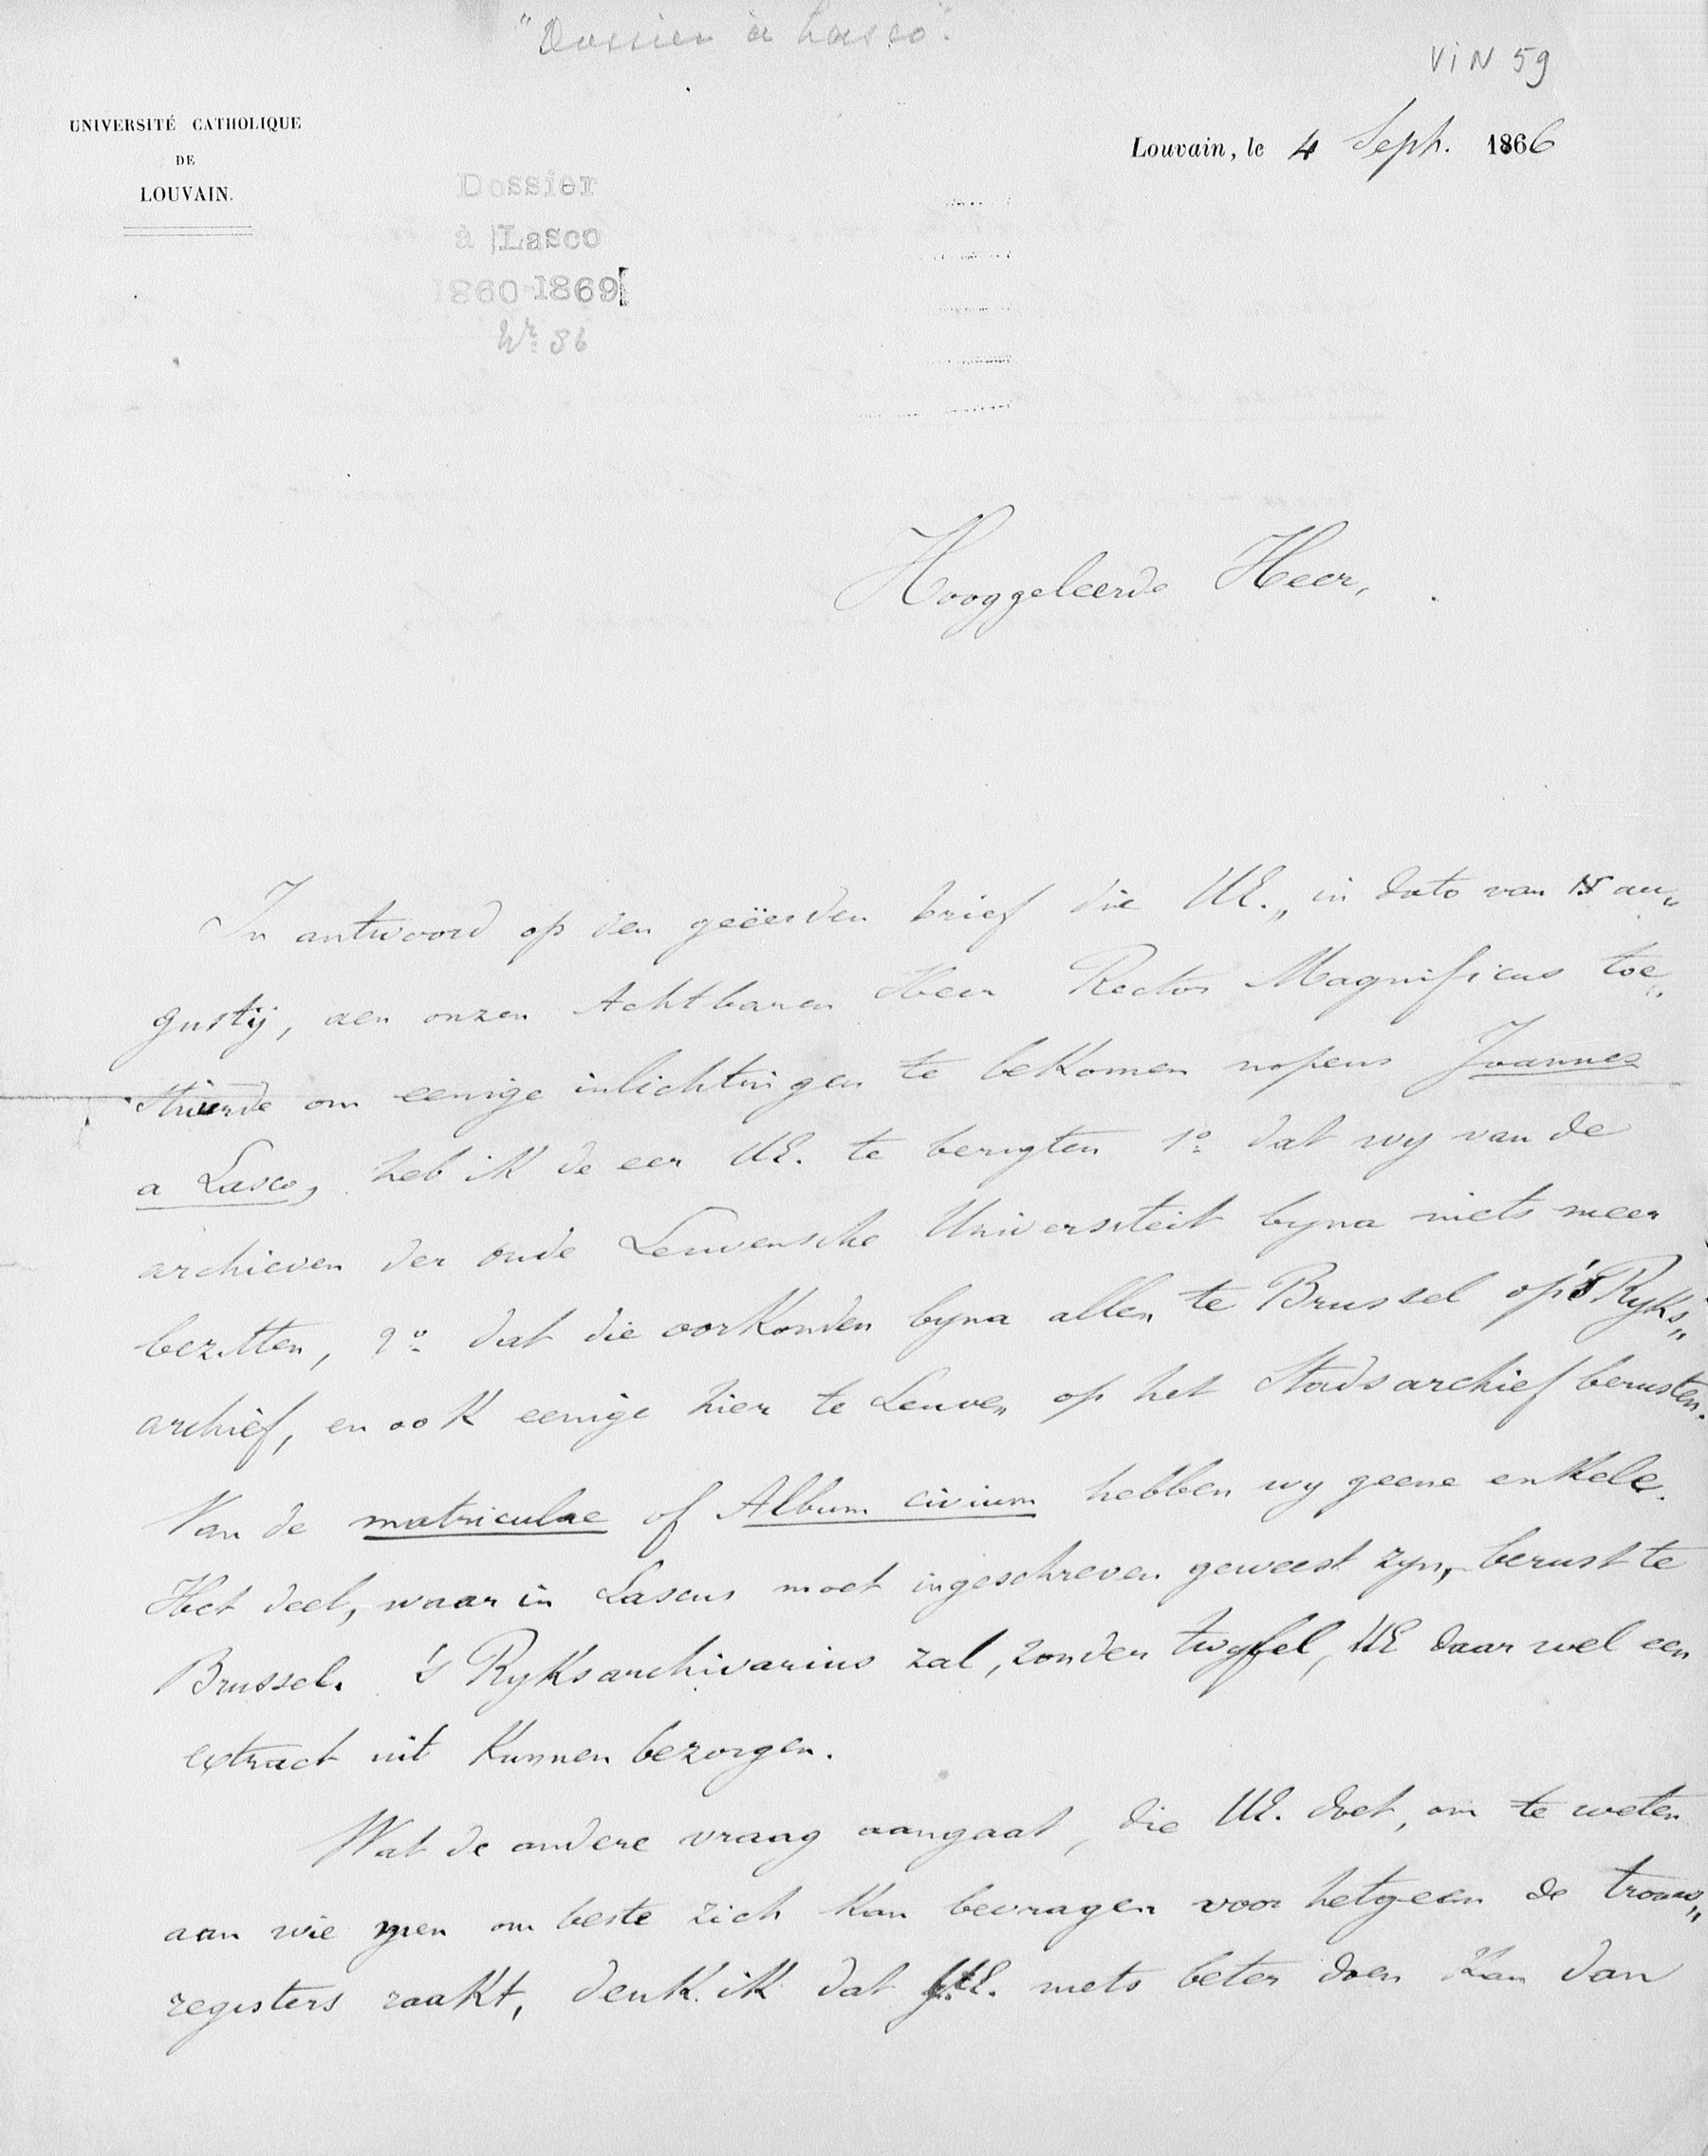 "Dossier a Lasco".
ViN 59
UNIVERSITÉ CATHOLIQUE
DE
LOUVAIN.
Louvain, le 4 Sept. 1866
Dossier
à Lasco
1860-1869
Nr 86
Hooggeleerde Heer,
In antwoord op den geëerden brief die UE. „ in dato van 15 au„
gustij, aen onzen Achtbaren Heer Rector Magnificus toe„
stuurde om eenige inlichtingen te bekomen nopens Joannes
a Lasco, heb ik de eer UE. te berigten 1o dat wy van de
archieven der oude Leuvensche Universiteit byna niets meer
bezitten, 2o dat die oorkonden byna allen te Brussel op 's Ryks„
archief, en ook eenige hier te Leuven op het Stadsarchief berusten.
Van de matriculae of Album civium hebben wy geene enkele.
Het deel, waar in Lascus moet ingeschreven geweest zyn, berust te
Brussel. 's Ryksarchivarius zal, zonder twyfel, UE daar wel een
extract uit kunnen bezorgen.
Wat de andere vraag aangaat, die UE. doet, om te weten
aan wie men om beste zich kan bevragen voor hetgeen de trouw„
registers raakt, denk ik dat UE. niets beter doen kan dan